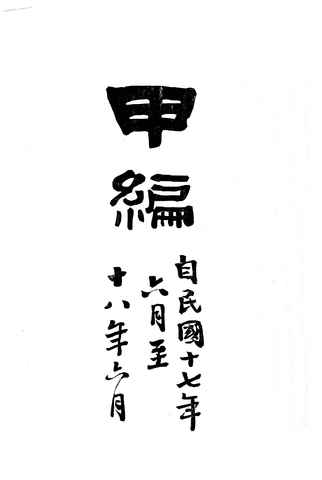 甲編
自民國十七年
六月至
十八年六月